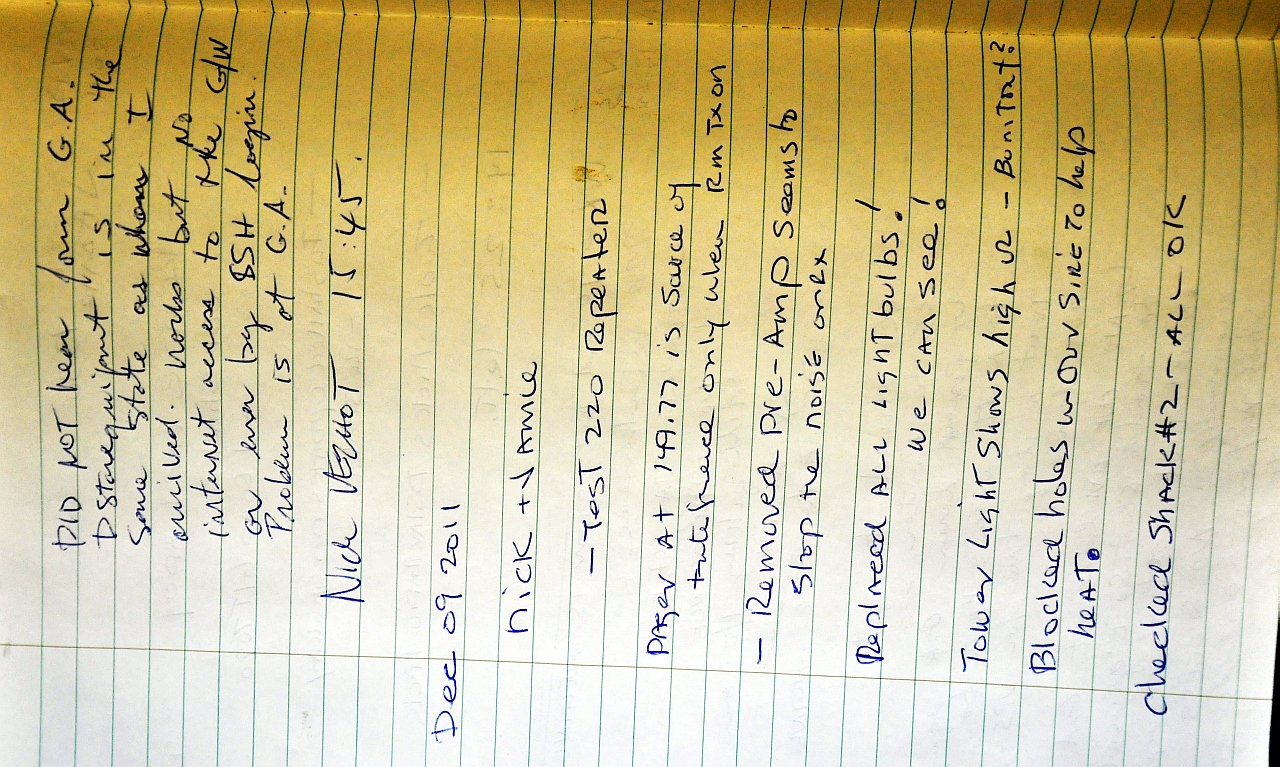 DID NOT hear from G.A.
DStar equipment is in the
same state as when I
arrived. Works but NO
internet access to the G/W
or even by SSH login.
Problem is at G.A.
Nick 15:45.
Dec 09 2011
Nick + Jamie
- Test 220 Repeater
Pager At 149.77 is source of
interference only when Rm Tx on
- Removed Pre-Amp seems to
stop the noise on Rx
Replaced ALL Light bulbs!
we can see!
Tower Light Shows high - Burnt out?
Blocked holes in Our Side To help
heat.
Checked Shack #2 - ALL OK